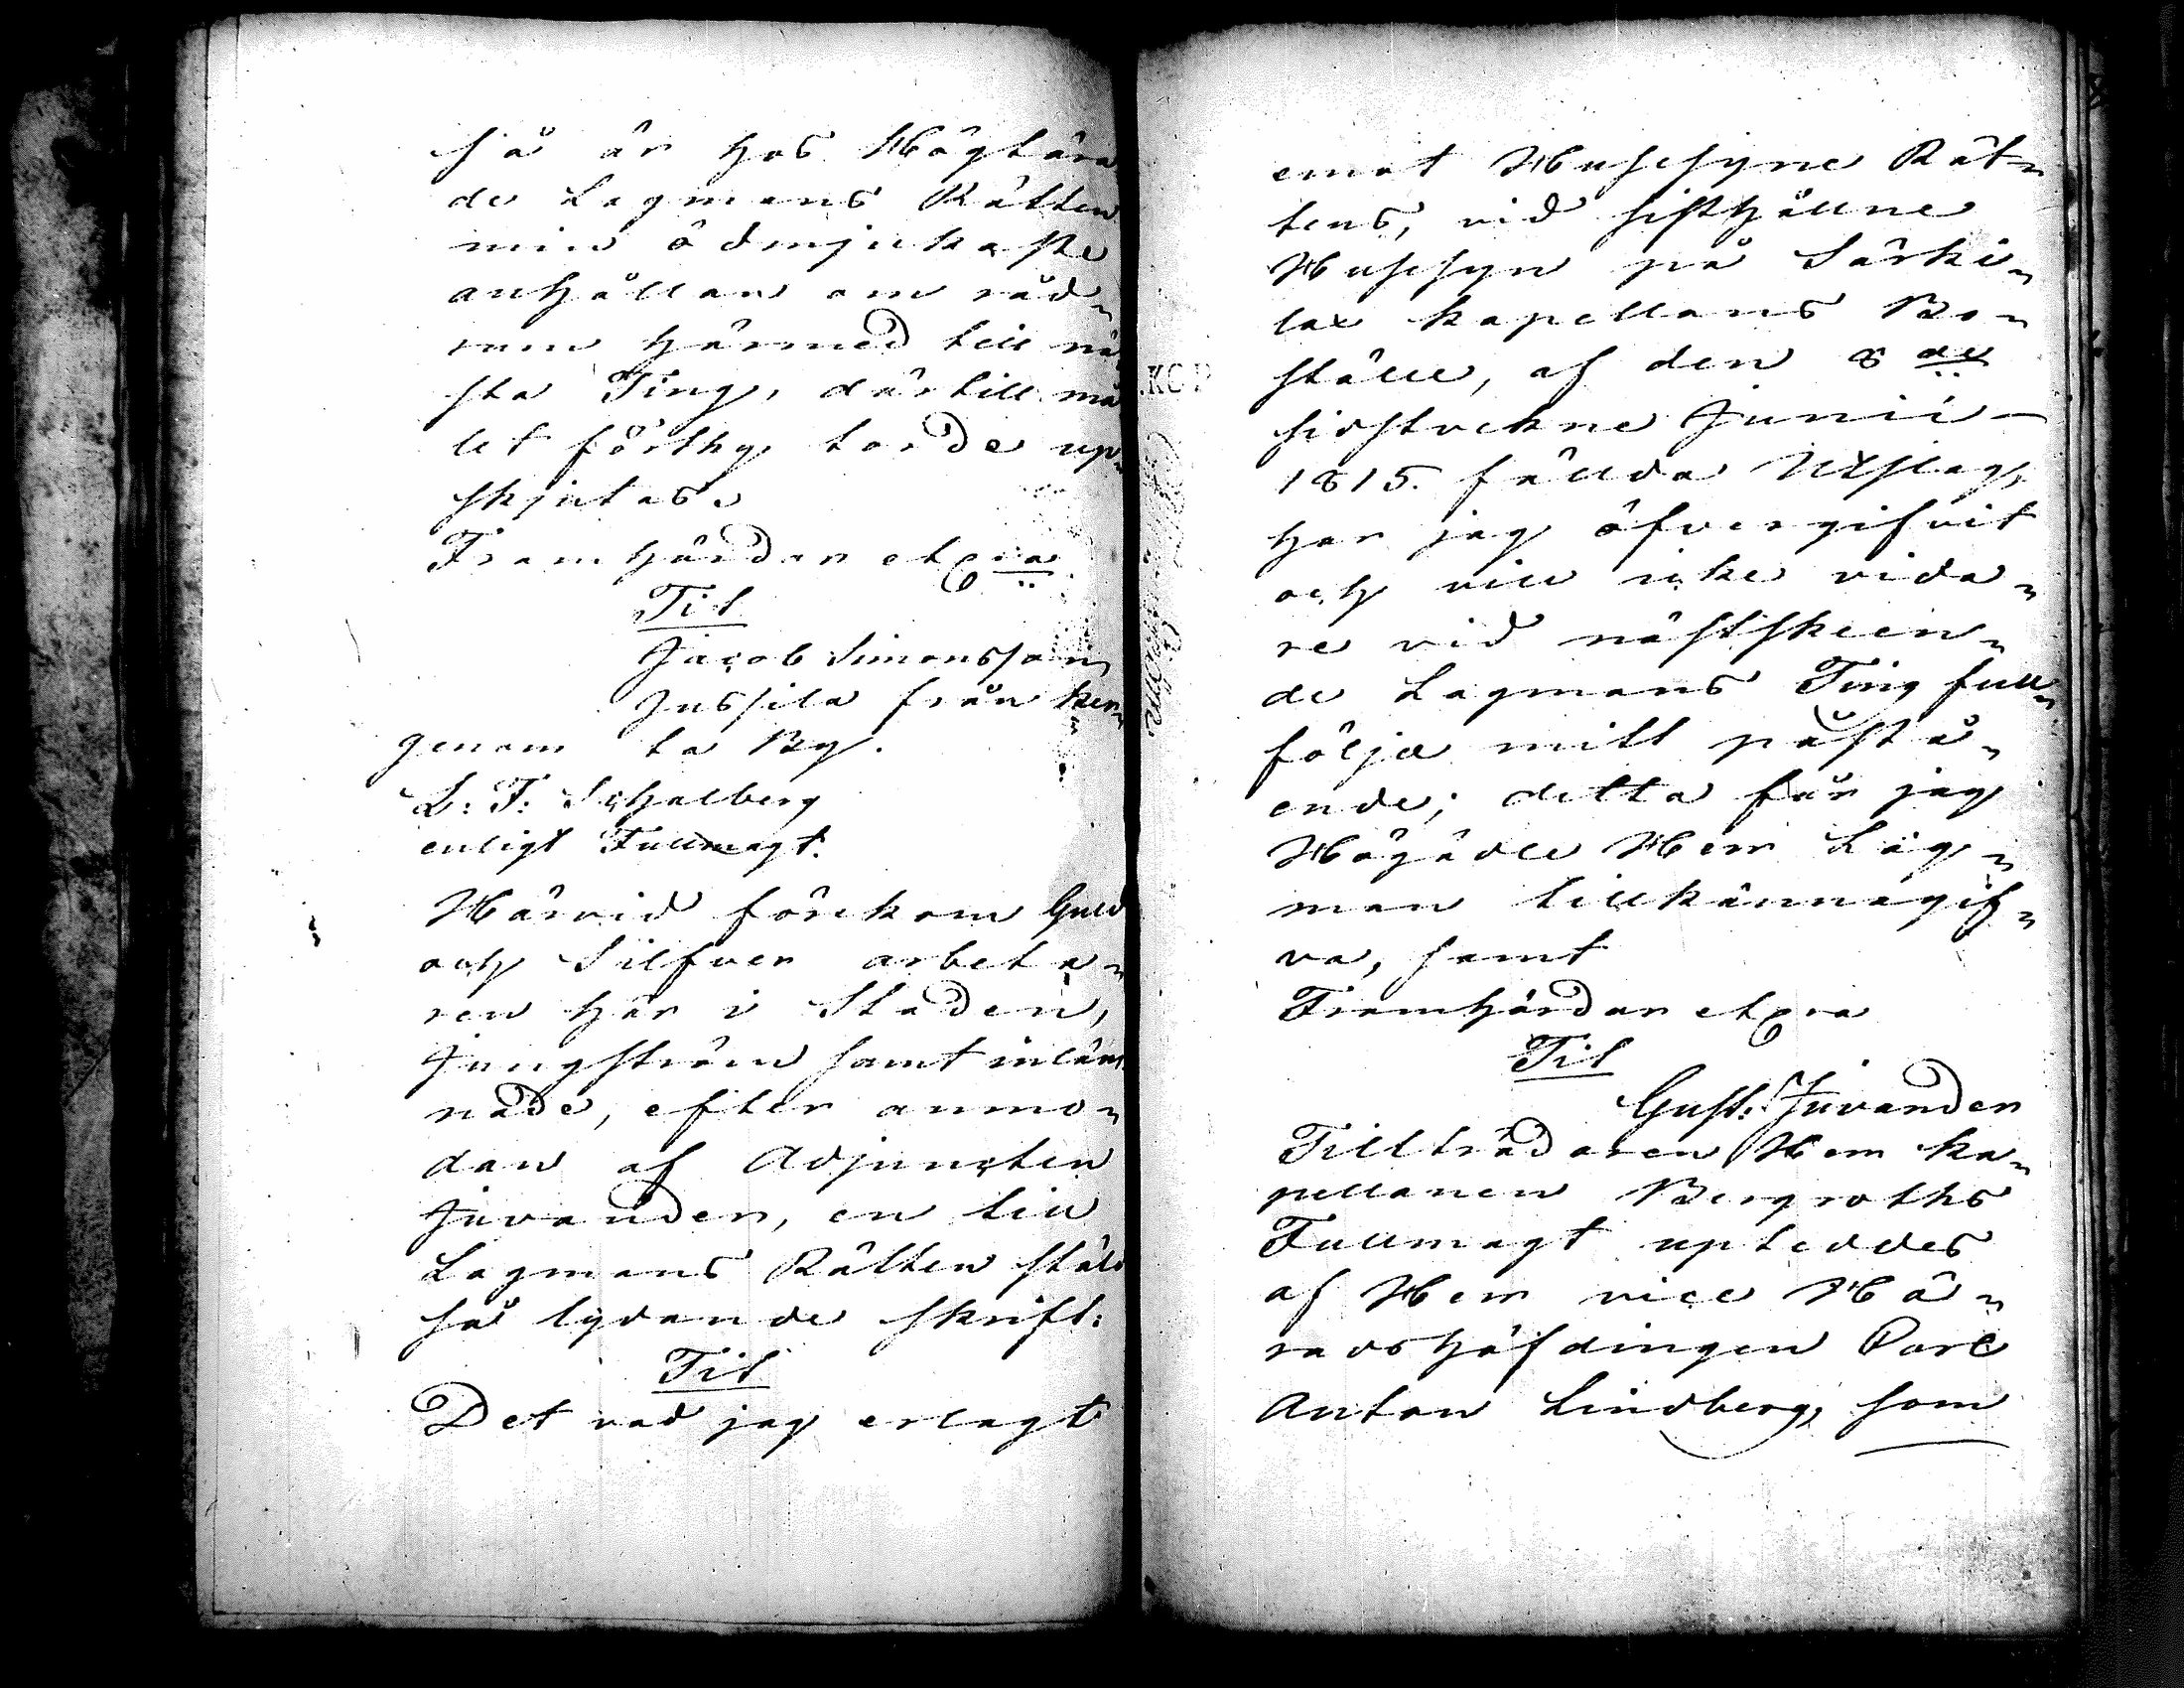 så är hos Högtära
de Lagmans Rätten
min ödmjukaste
anhållan om råd¬
rum härmed till nä
sta Ting, därtill må
let förthy torde up¬
skjutas.
Framhärdar etc:ra
Til
Jacob Simonsson
Jussila från Ken¬
genom ta By.
L: F: Schalberg
enligt Fullmagt.
Härvid förekom Guld
och Silfver arbeta¬
ren här i Staden,
Jungström samt inläm
nade, efter anmo¬
dan af Adjuncten
Juvander, en till
Lagmans Rätten stäld
så lydande skrift:
Til
Det vad jag erlagt
emot Husesyne Rät¬
tens, vid sisthållne
Husesyn på Särki¬
lax Kapellans Bo¬
ställe, af den 8 de
sidstvekne Junii
1815. fällda Utslag,
har jag öfvergifvit
och vill icke vida¬
re vid nästskeen¬
de Lagmans Ting full¬
följa mitt påstå¬
ende; detta får jag
Högädle Herr Lag¬
man tillkännagif¬
va, samt
Framhärdar etc:ra
Til
Gust: Juvander
Tillträdaren Herr Ka¬
pellanen Bergroths
Fullmagt upteddes
af Herr vice Hä¬
radshöfdingen Carl
Anton Lindberg, som